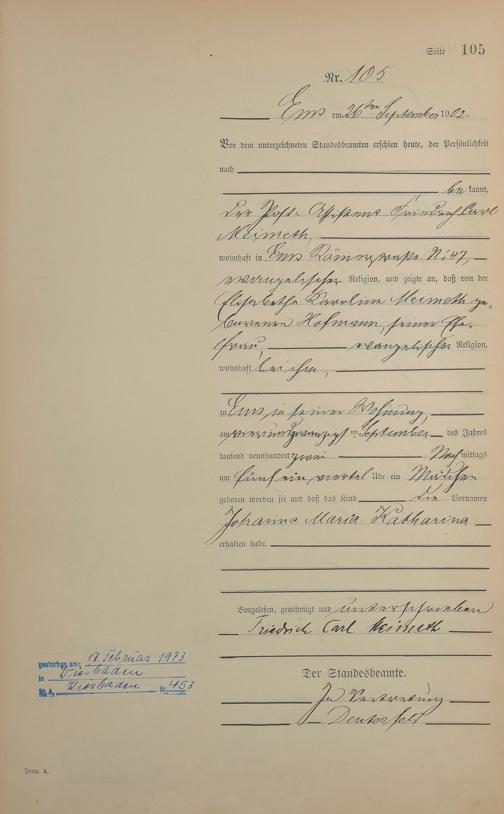 Seite 105
Nr. 105
Ems am 26ten September 1902.
Vor dem unterzeichneten Standesbeamten erschien heute, der Persönlichkeit
nach
bekannt,
der Post-Assistent Friedrich Carl
Meimeth,
wohnhaft in Ems Römerstraße No 47,
evangelischer Religion, und zeigte an, daß von der
Elisabetha Karolina Meimeth ge-
borenen Hofmann, seiner Ehe-
frau, evangelischer Religion,
wohnhaft bei ihm,
zu Ems in seiner Wohnung,
am vierundzwanzigsten September des Jahres
tausend neunhundert zwei Nachmittags
um fünf ein viertel Uhr ein Mädchen
geboren worden sei und daß das Kind die Vornamen
Johanna Maria Katharina
erhalten habe.
Vorgelesen, genehmigt und unterschrieben
Friedrich Carl Meimeth
Der Standesbeamte.
In Vertretung
gestorben am: 17. Februar 1973
in Wiesbaden
St. A. Wiesbaden Nr. 453
Form. A.